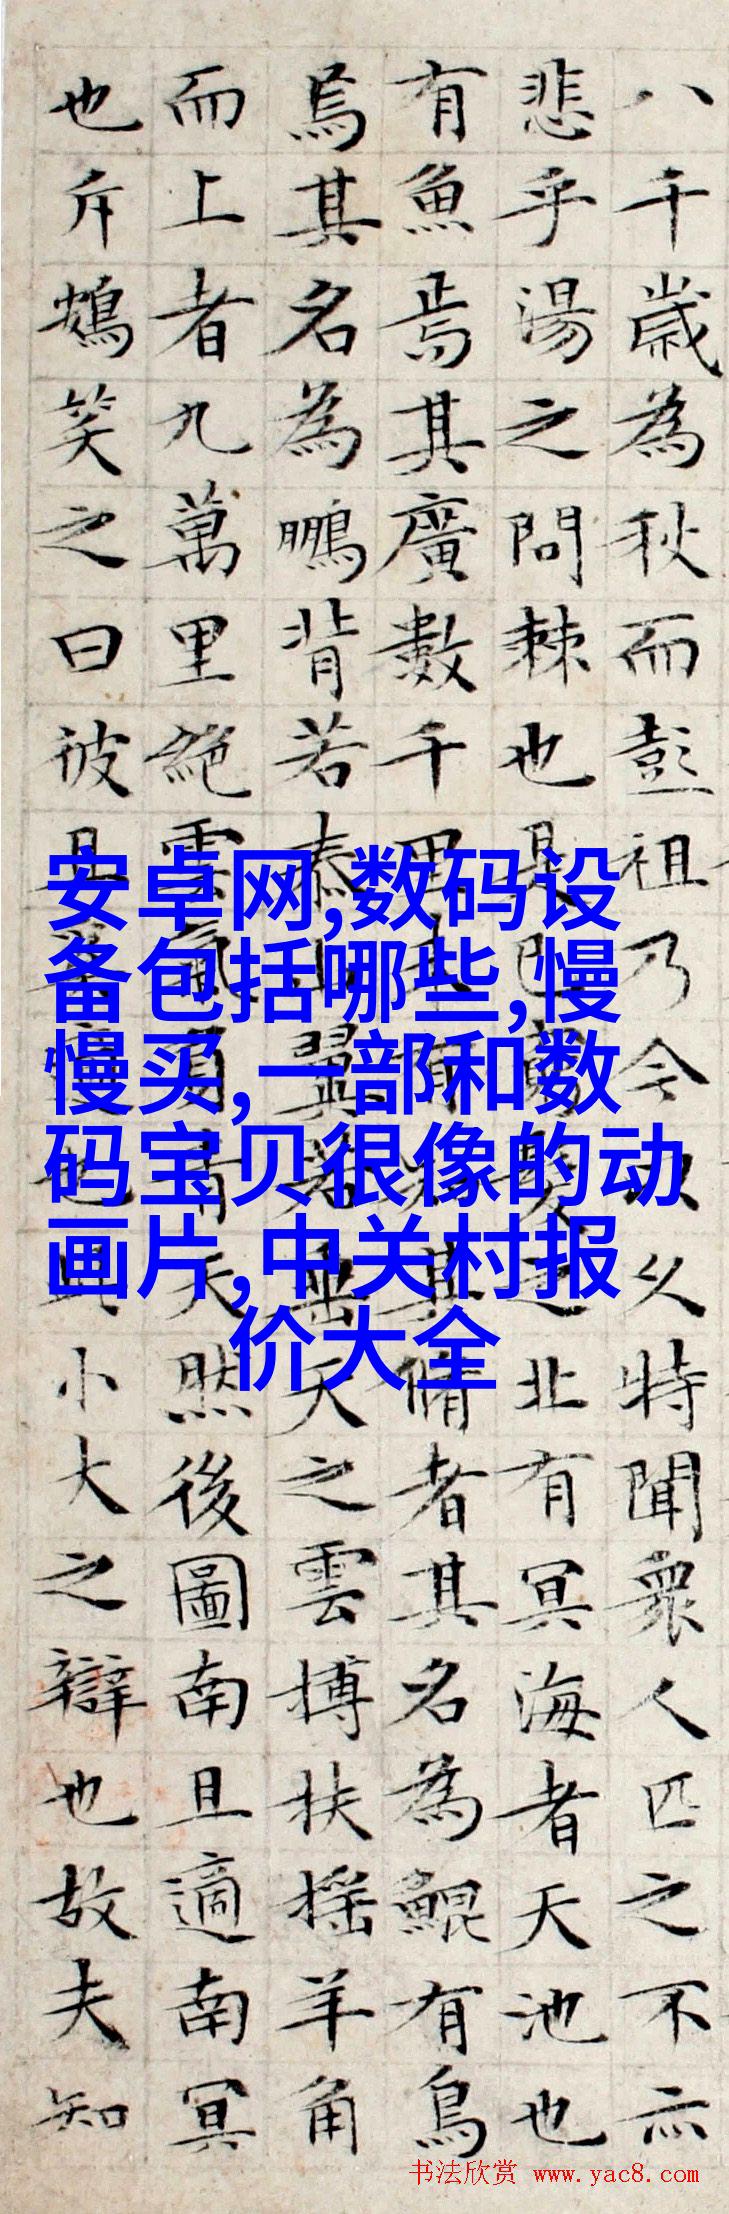 八千歲為秋而彭祖乃今以久特聞衆人匹之不亦
悲乎湯之問棘也是已窮髮之北有冥海者天池也
有魚焉其廣數千里未有知其脩者其名為鯤有鳥
焉其名為鵬背若泰山翼若垂天之雲搏扶搖羊角
而上者九萬里絕雲氣負青天然後圖南且適南冥
也斥鴳笑之曰彼且奚適也此小大之辯也故夫知
安卓网,数码设
备包括哪些,慢
慢买,一部和数
码宝贝很像的动
画片,中关村报
价大全
书法欣赏 www.yac8.com